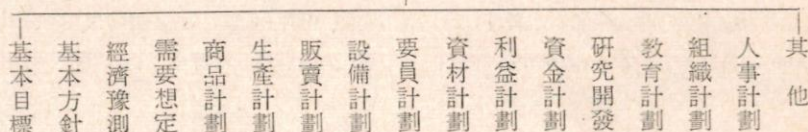 基本目標
基本方針
經濟豫測
需要想定
商品計劃
生產計劃
販賣計劃
設備計劃
要員計劃
資材計劃
利益計劃
資金計劃
研究開發
教育計劃
組織計劃
人事計劃
其他